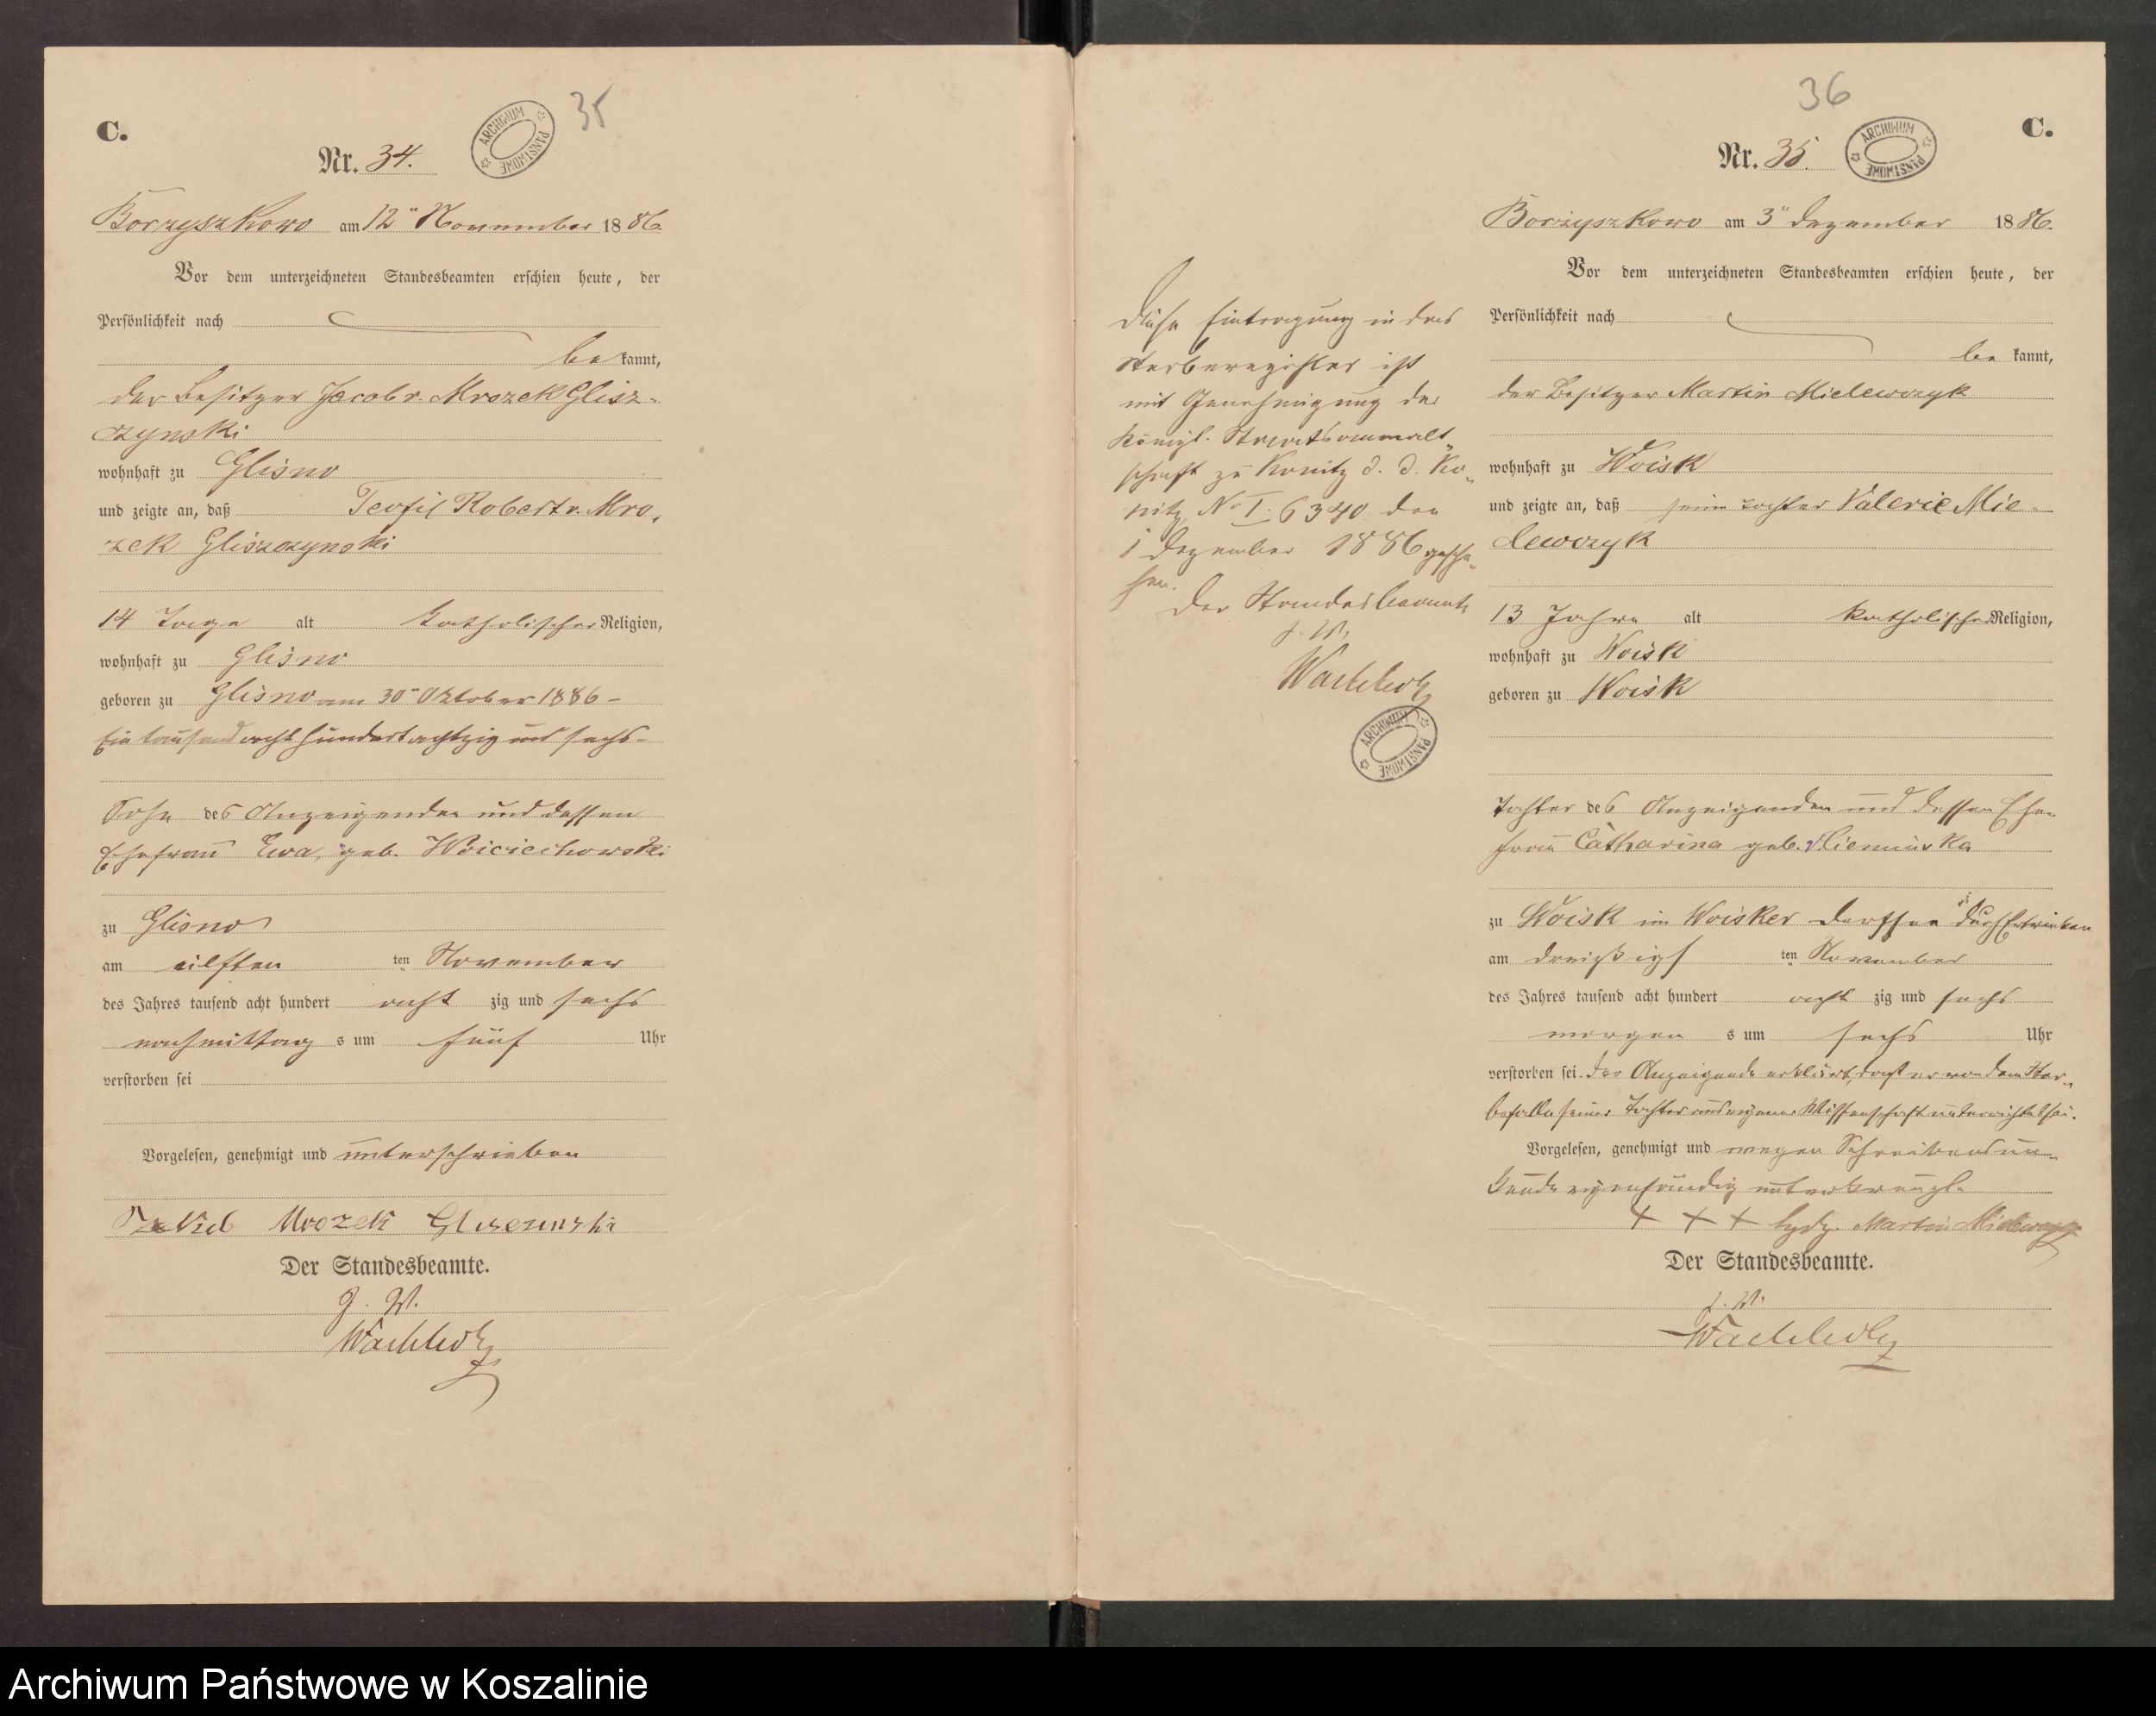 C.
35
Nr. 34.
ARCHIWUM PAŃSTWOWE
Borzyszkowo am 12ten November 1886.
Vor dem unterzeichneten Standesbeamten erschien heute, der
Persönlichkeit nach
be kannt,
der Besitzer Jacob v. Mrozek Glisz-
czynski
wohnhaft zu Glisno
und zeigte an, daß Teofil Robert v. Mro-
zek Gliszczynski
14 Tage alt katholischer Religion,
wohnhaft zu Glisno
geboren zu Glisno am 30ten Oktober 1886 –
Ein tausend acht hundert achtzig und sechs –
Sohn des Anzeigenden und dessen
Ehefrau Ewa, geb. Woiciechowski
zu Glisno
am eilften ten November
des Jahres tausend acht hundert acht zig und sechs
nachmittag s um fünf Uhr
verstorben sei
Vorgelesen, genehmigt und unterschrieben
Mrozek
Der Standesbeamte.
J. V.
36
C.
Nr. 35.
ARCHIWUM PAŃSTWOWE
Borzyszkowo am 3ten Dezember 1886.
Vor dem unterzeichneten Standesbeamten erschien heute, der
Persönlichkeit nach
be kannt,
der Besitzer Martin Mielewczyk
wohnhaft zu Woisk
und zeigte an, daß seine Tochter Valerie Mie-
lewczyk
13 Jahre alt katholischer Religion,
wohnhaft zu Woisk
geboren zu Woisk
Tochter des Anzeigenden und dessen Ehe-
frau Catharina geb.
zu Woisk im Woisker Dorfsee durch Ertrinken
am dreißigs ten November
des Jahres tausend acht hundert acht zig und sechs
morgen s um sechs Uhr
verstorben sei. Der Anzeigende erklärt, daß er von dem Ster-
befalle seiner Tochter aus eigener Wissenschaft unterrichtet sei.
Vorgelesen, genehmigt und wegen Schreibensun-
kunde eigenhändig unterkreuzt.
+ + + Hdz. Martin Mielewczyk
Der Standesbeamte.
J. V.
Diese Eintragung in das
Sterberegister ist
mit Genehmigung der
Königl. Staatsanwalt-
schaft zu Konitz d. d. Ko-
nitz No I. 6340 den
1 Dezember 1886 gesche-
hen.
Der Standesbeamte
J. V.
ARCHIWUM PAŃSTWOWE
Archiwum Państwowe w Koszalinie